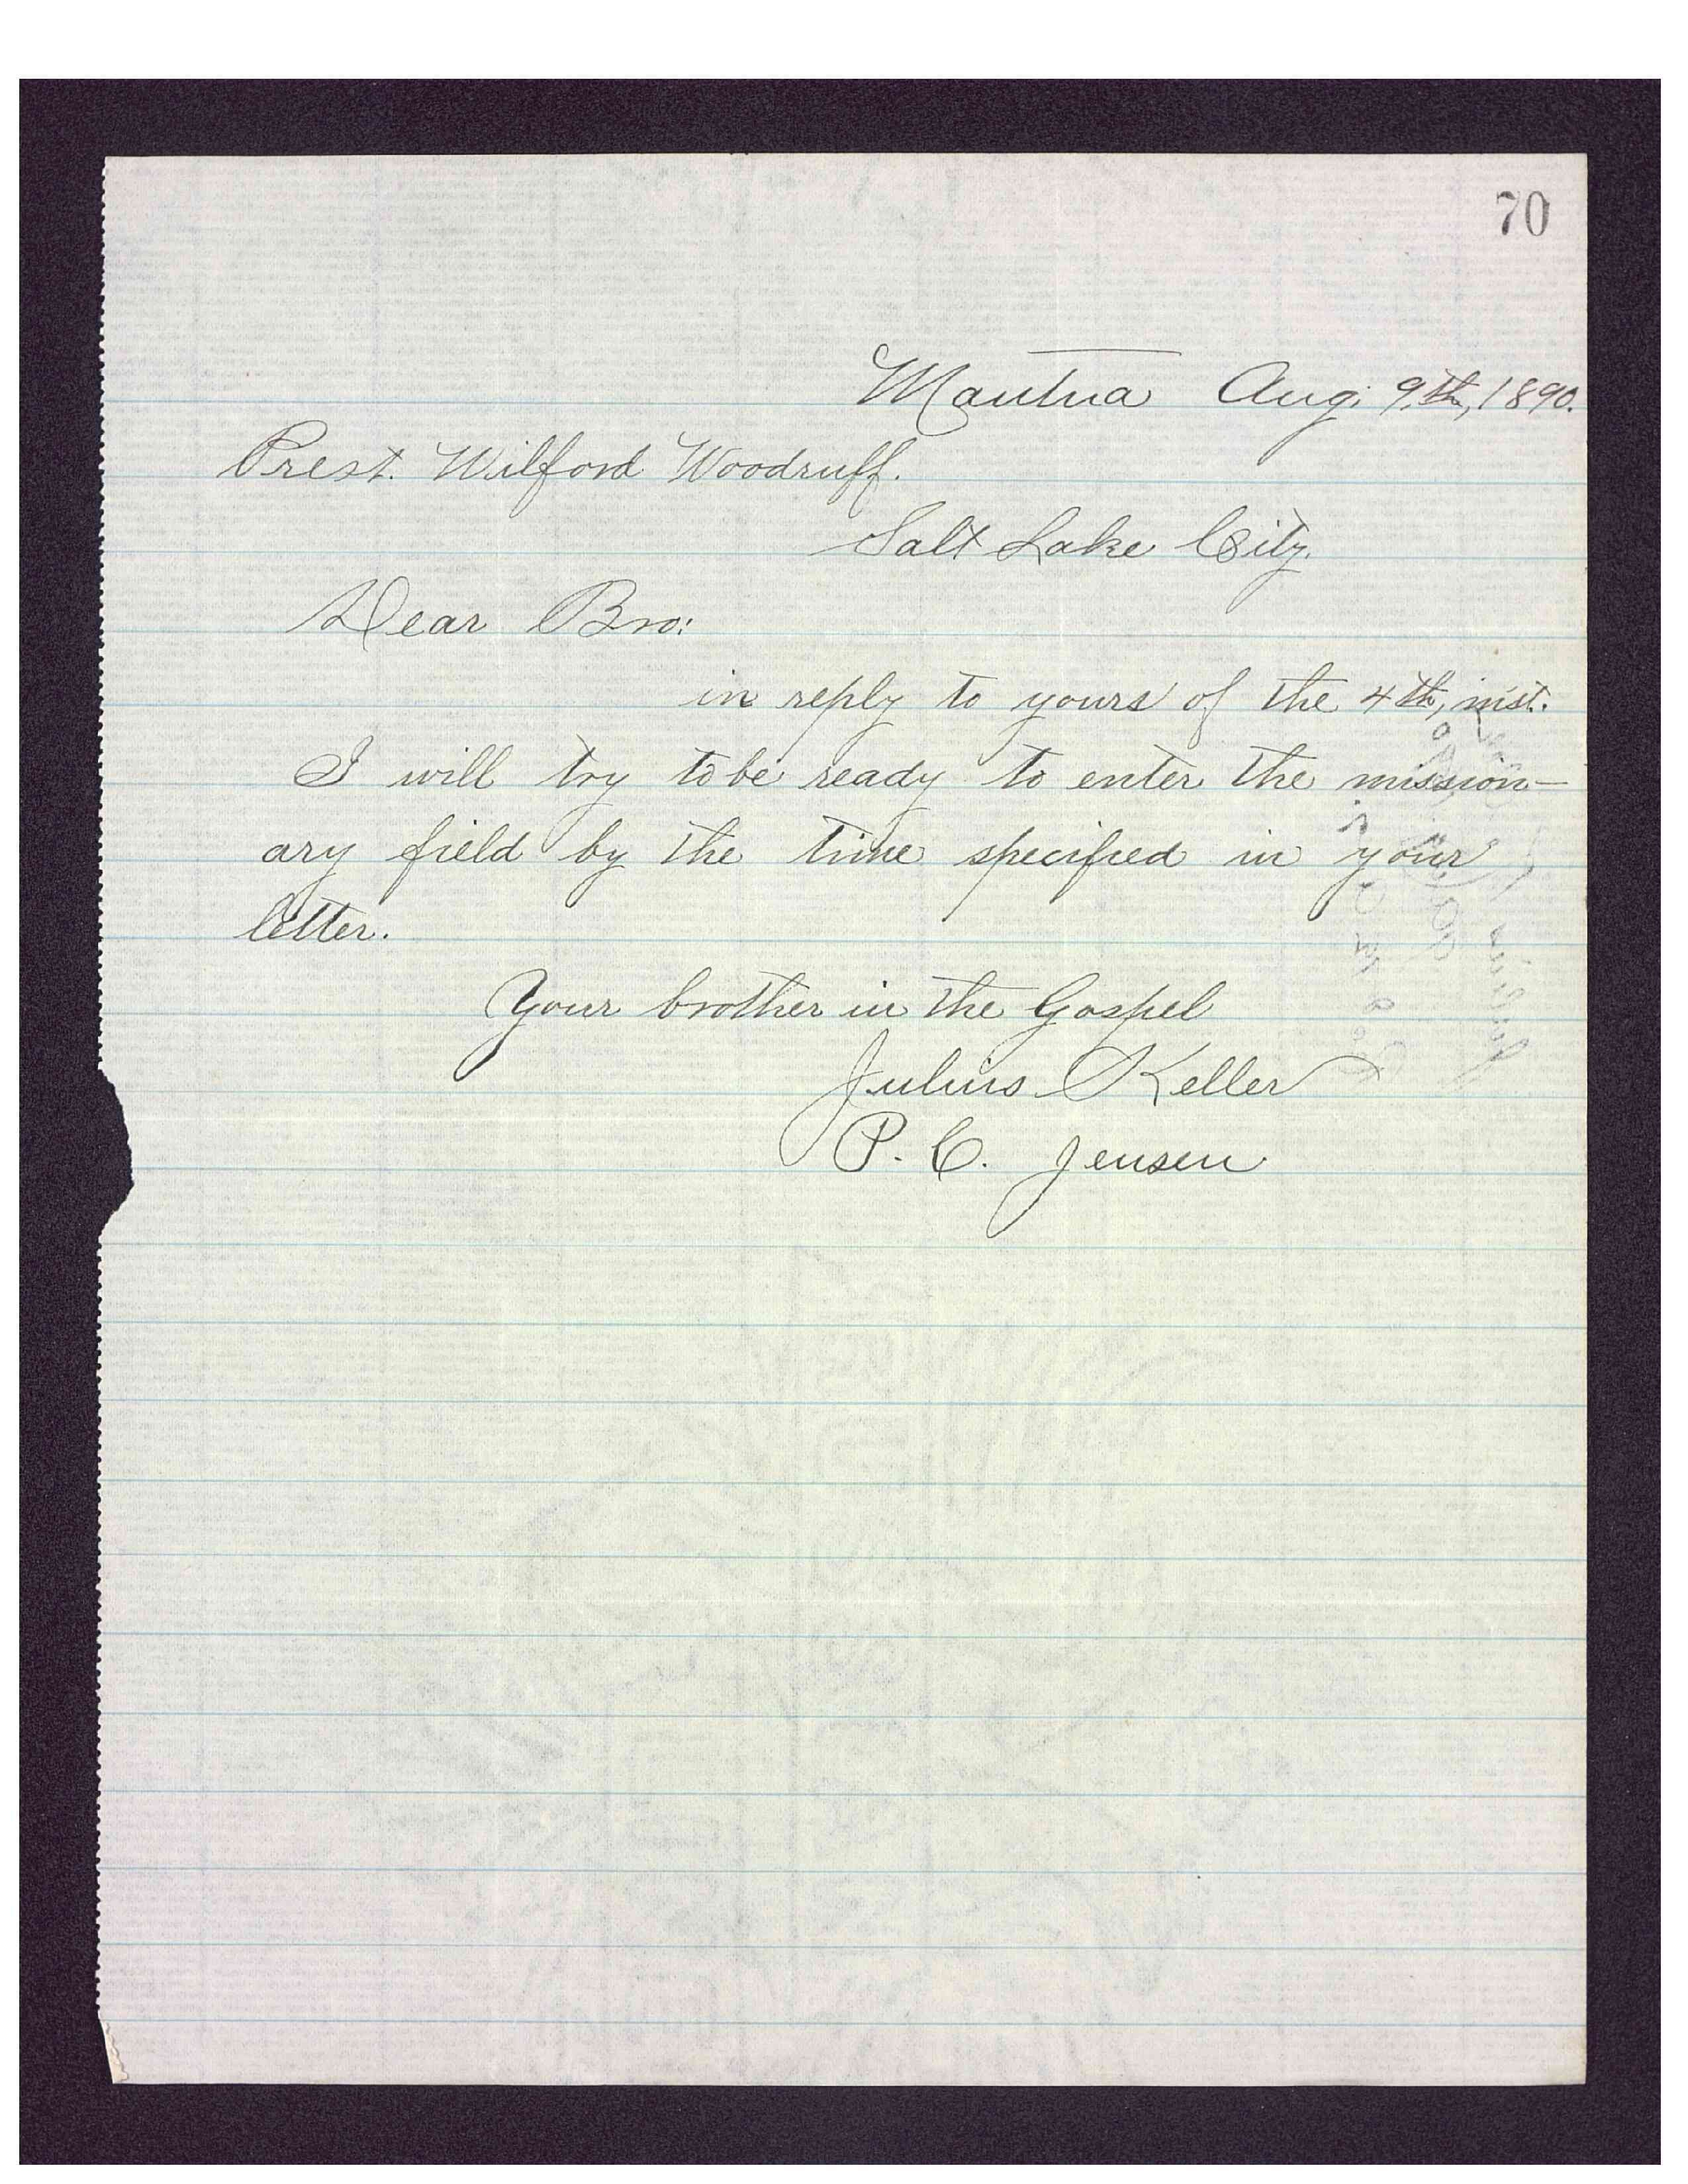 70
Mantua Aug. 9.th, 1890.
Prest. Wilford Woodruff.
Salt Lake City.
Dear Bro:
in reply to yours of the 4th, inst.
I will try to be ready to enter the mission-
ary field by the time specified in your
letter.
Your brother in the Gospel
Julius Keller
P. C. Jensen